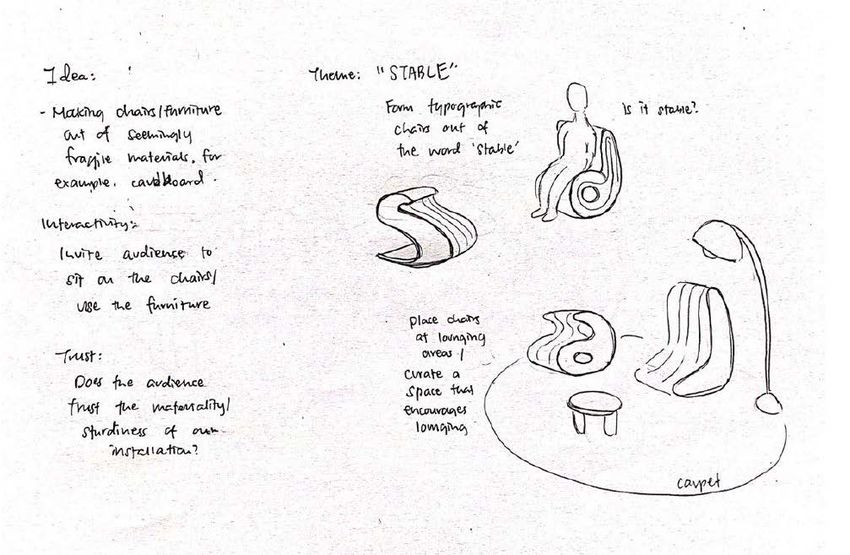 Idea:
- Making chairs/furniture
out of seemingly
fragile materials, for
example, cardboard.
Interactivity:
Invite audience to
sit on the chairs/
use the furniture
Trust:
Does the audience
trust the materiality/
sturdiness of our
installation?
Theme: "STABLE"
Form typographic
chairs out of
the word 'stable'
Is it stable?
place chairs
at lounging
areas /
curate a
space that
encourages
lounging
carpet